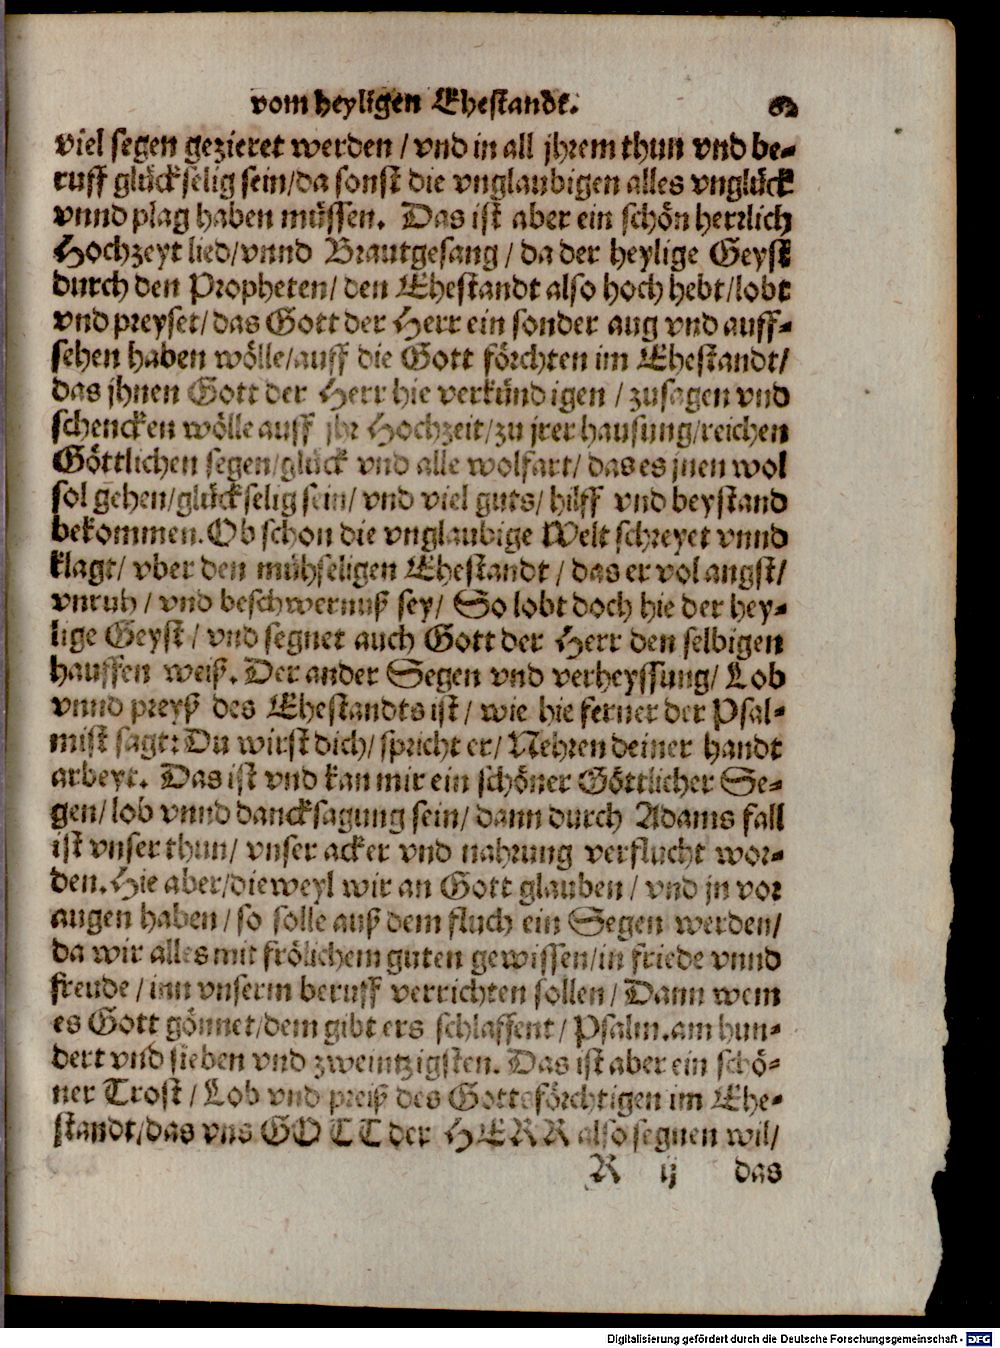 vom heyligen Ehestandt. 62
viel segen gezieret werden / vnd in all jhrem thun vnd be-
ruff glückselig sein/da sonst die vnglaubigen alles vnglück
vnnd plag haben müssen. Das ist aber ein schön herrlich
Hochzeyt lied/vnnd Brautgesang / da der heylige Geyst
durch den Propheten/ den Ehestandt also hoch hebt/lobt
vnd preyset/ das Gott der Herr ein sonder aug vnd auff-
sehen haben wölle/auff die Gott förchten im Ehestandt/
das jhnen Gott der Herr hie verkündigen / zusagen vnd
schencken wölle auff jhr Hochzeit/zu jrer hausung/reichen
Göttlichen segen/glück vnd alle wolfart/ das es jnen wol
sol gehen/glückselig sein/ vnd viel guts/ hilff vnd beystand
bekommen. Ob schon die vnglaubige Welt schreyet vnnd
klagt/ vber den mühseligen Ehestandt / das er vol angst/
vnruh / vnd beschwernuß sey/ So lobt doch hie der hey-
lige Geyst / vnd segnet auch Gott der Herr den selbigen
hauffen weiß. Der ander Segen vnd verheyssung/ Lob
vnnd preyß des Ehestandts ist / wie hie ferner der Psal-
mist sagt: Du wirst dich/ spricht er/ Nehren deiner handt
arbeyt. Das ist vnd kan mir ein schöner Göttlicher Se-
gen/ lob vnnd dancksagung sein/ dann durch Adams fall
ist vnser thun/ vnser acker vnd nahrung verflucht wor-
den. Hie aber/dieweyl wir an Gott glauben / vnd jn vor
augen haben / so solle auß dem fluch ein Segen werden/
da wir alles mit frölichem guten gewissen/in friede vnnd
freude / inn vnserm beruff verrichten sollen / Dann wem
es Gott gönnet/dem gibt ers schlaffent / Psalm. am hun-
dert vnd sieben vnd zweintzigsten. Das ist aber ein schö-
ner Trost / Lob vnd preiß des Gottsförchtigen im Ehe-
standt/das vns GOTT der HERR also segnen wil/
R ij das
Digitalisierung gefördert durch die Deutsche Forschungsgemeinschaft - DFG